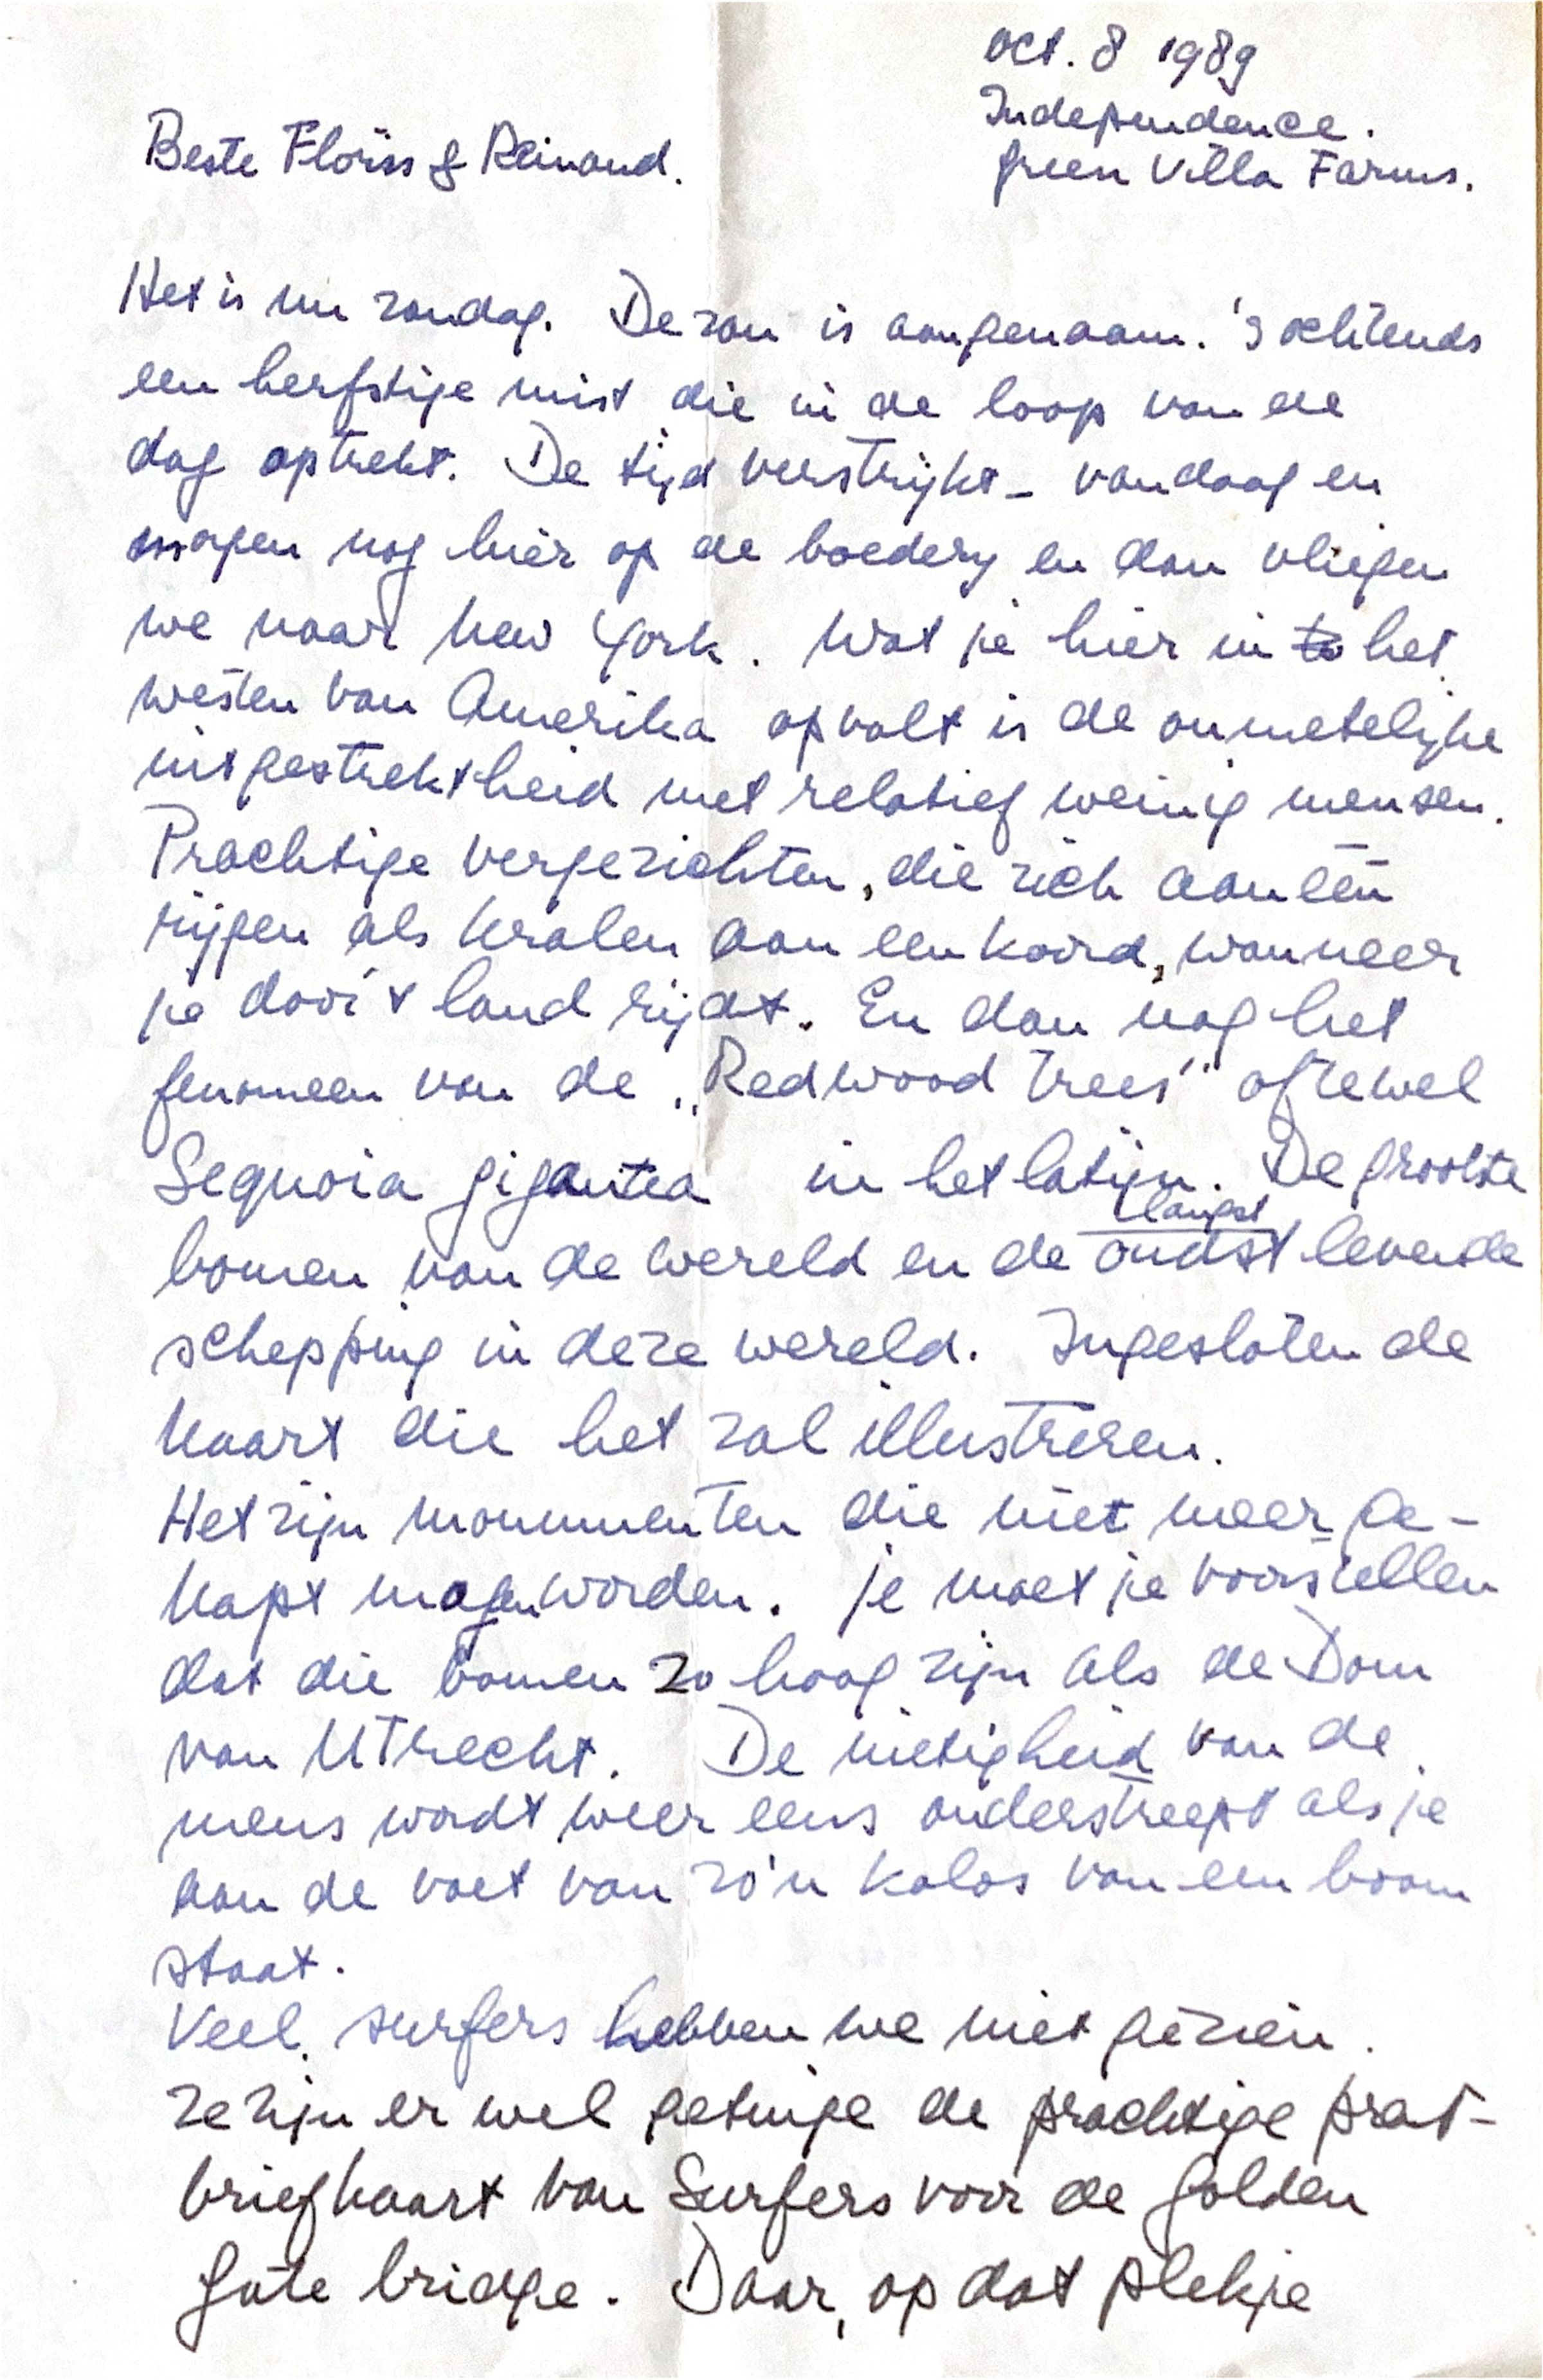 Oct. 8 1989
Independence.
Green Villa Farms.
Beste Floris & Reinoud.
Het is nu zondag. De zon is aangenaam. 's ochtends
een herfstige mist die in de loop van de
dag optrekt. De tijd verstrijkt - vandaag en
morgen nog hier op de boederij en dan vliegen
we naar New York. Wat je hier in to het
westen van Amerika opvalt is de onmetelijke
uitgestrektheid met relatief weinig mensen.
Prachtige vergezichten, die zich aan één
rijgen als kralen aan een koord, wanneer
je door 't land rijdt. En dan nog het
fenomeen van de „Redwood Trees" oftewel
Sequoia gigantea in het latijn. De grootste
langst
bomen van de wereld en de oudst levende
schepping in deze wereld. Ingesloten de
kaart die het zal illustreren.
Het zijn monumenten die niet meer ge-
kapt mogen worden. je moet je voorstellen
dat die bomen zo hoog zijn als de Dom
van Utrecht. De nietigheid van de
mens wordt weer eens onderstreept als je
aan de voet van zo'n kolos van een boom
staat.
Veel surfers hebben we niet gezien.
ze zijn er wel getuige de prachtige prat-
briefkaart van Surfers voor de Golden
Gate bridge. Daar, op dat plekje